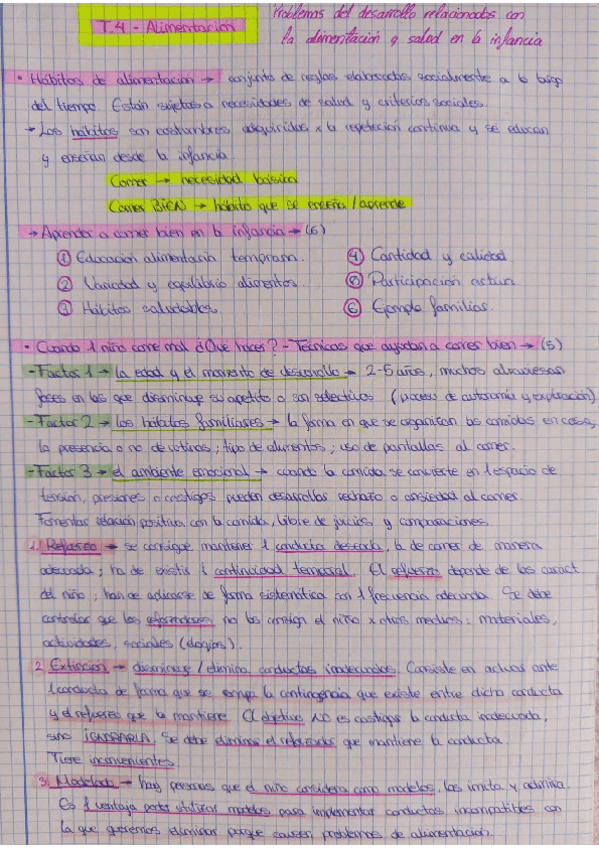 T.4 - Alimentación
Problemas del desarrollo relacionados con
la alimentación y salud en la infancia
• Hábitos de alimentación → conjunto de reglas elaboradas socialmente a lo largo
del tiempo. Están sujetas a necesidades de salud y criterios sociales.
→ Los hábitos son costumbres adquiridas x la repetición continua y se educan
y enseñan desde la infancia.
Comer → necesidad básica
Comer BIEN → hábito que se enseña / aprende
→ Aprender a comer bien en la infancia → (6)
① Educación alimentaria temprana.
② Variedad y equilibrio alimentos.
③ Hábitos saludables.
④ Cantidad y calidad
⑤ Participación activa.
⑥ Ejemplo familias.
• Cuando 1 niño come mal ¿Qué haces? - Técnicas que ayudan a comer bien → (5)
- Factor 1 → la edad y el momento de desarrollo → 2-5 años, muchos atraviesan
fases en las que disminuye su apetito o son selectivos (proceso de autonomía y exploración).
- Factor 2 → los hábitos familiares → la forma en que se organizan las comidas en casa,
la presencia o no de rutinas; tipo de alimentos; uso de pantallas al comer.
- Factor 3 → el ambiente emocional → cuando la comida se convierte en 1 espacio de
tensión, presiones o castigos pueden desarrollar rechazo o ansiedad al comer.
Fomentar relación positiva con la comida, libre de juicios y comparaciones.
1. Refuerzo → se consigue mantener 1 conducta deseada, la de comer de manera
adecuada; ha de existir 1 continuidad temporal. El refuerzo depende de las caract
del niño; han de aplicarse de forma sistemática con 1 frecuencia adecuada. Se debe
controlar que los reforzadores no los consiga el niño x otros medios: materiales,
actividades, sociales (elogios).
2. Extinción → disminuye / elimina conductas inadecuadas. Consiste en actuar ante
1 conducta de forma que se rompa la contingencia que existe entre dicha conducta
y el refuerzo que la mantiene. El objetivo NO es castigar la conducta inadecuada,
sino IGNORARLA. Se debe eliminar el reforzador que mantiene la conducta.
Tiene inconvenientes.
3. Modelado → hay personas que el niño considera como modelos, las imita y admira.
Es 1 ventaja poder utilizar modelos para implementar conductas incompatibles con
la que queremos eliminar porque causen problemas de alimentación.